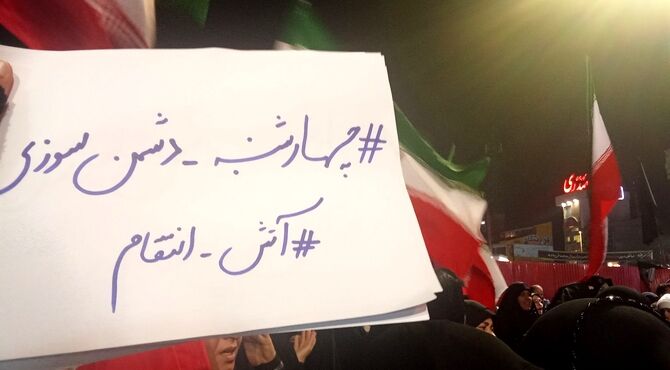 #چهارشنبه_دشمن سوزی
#آتش_انتقام